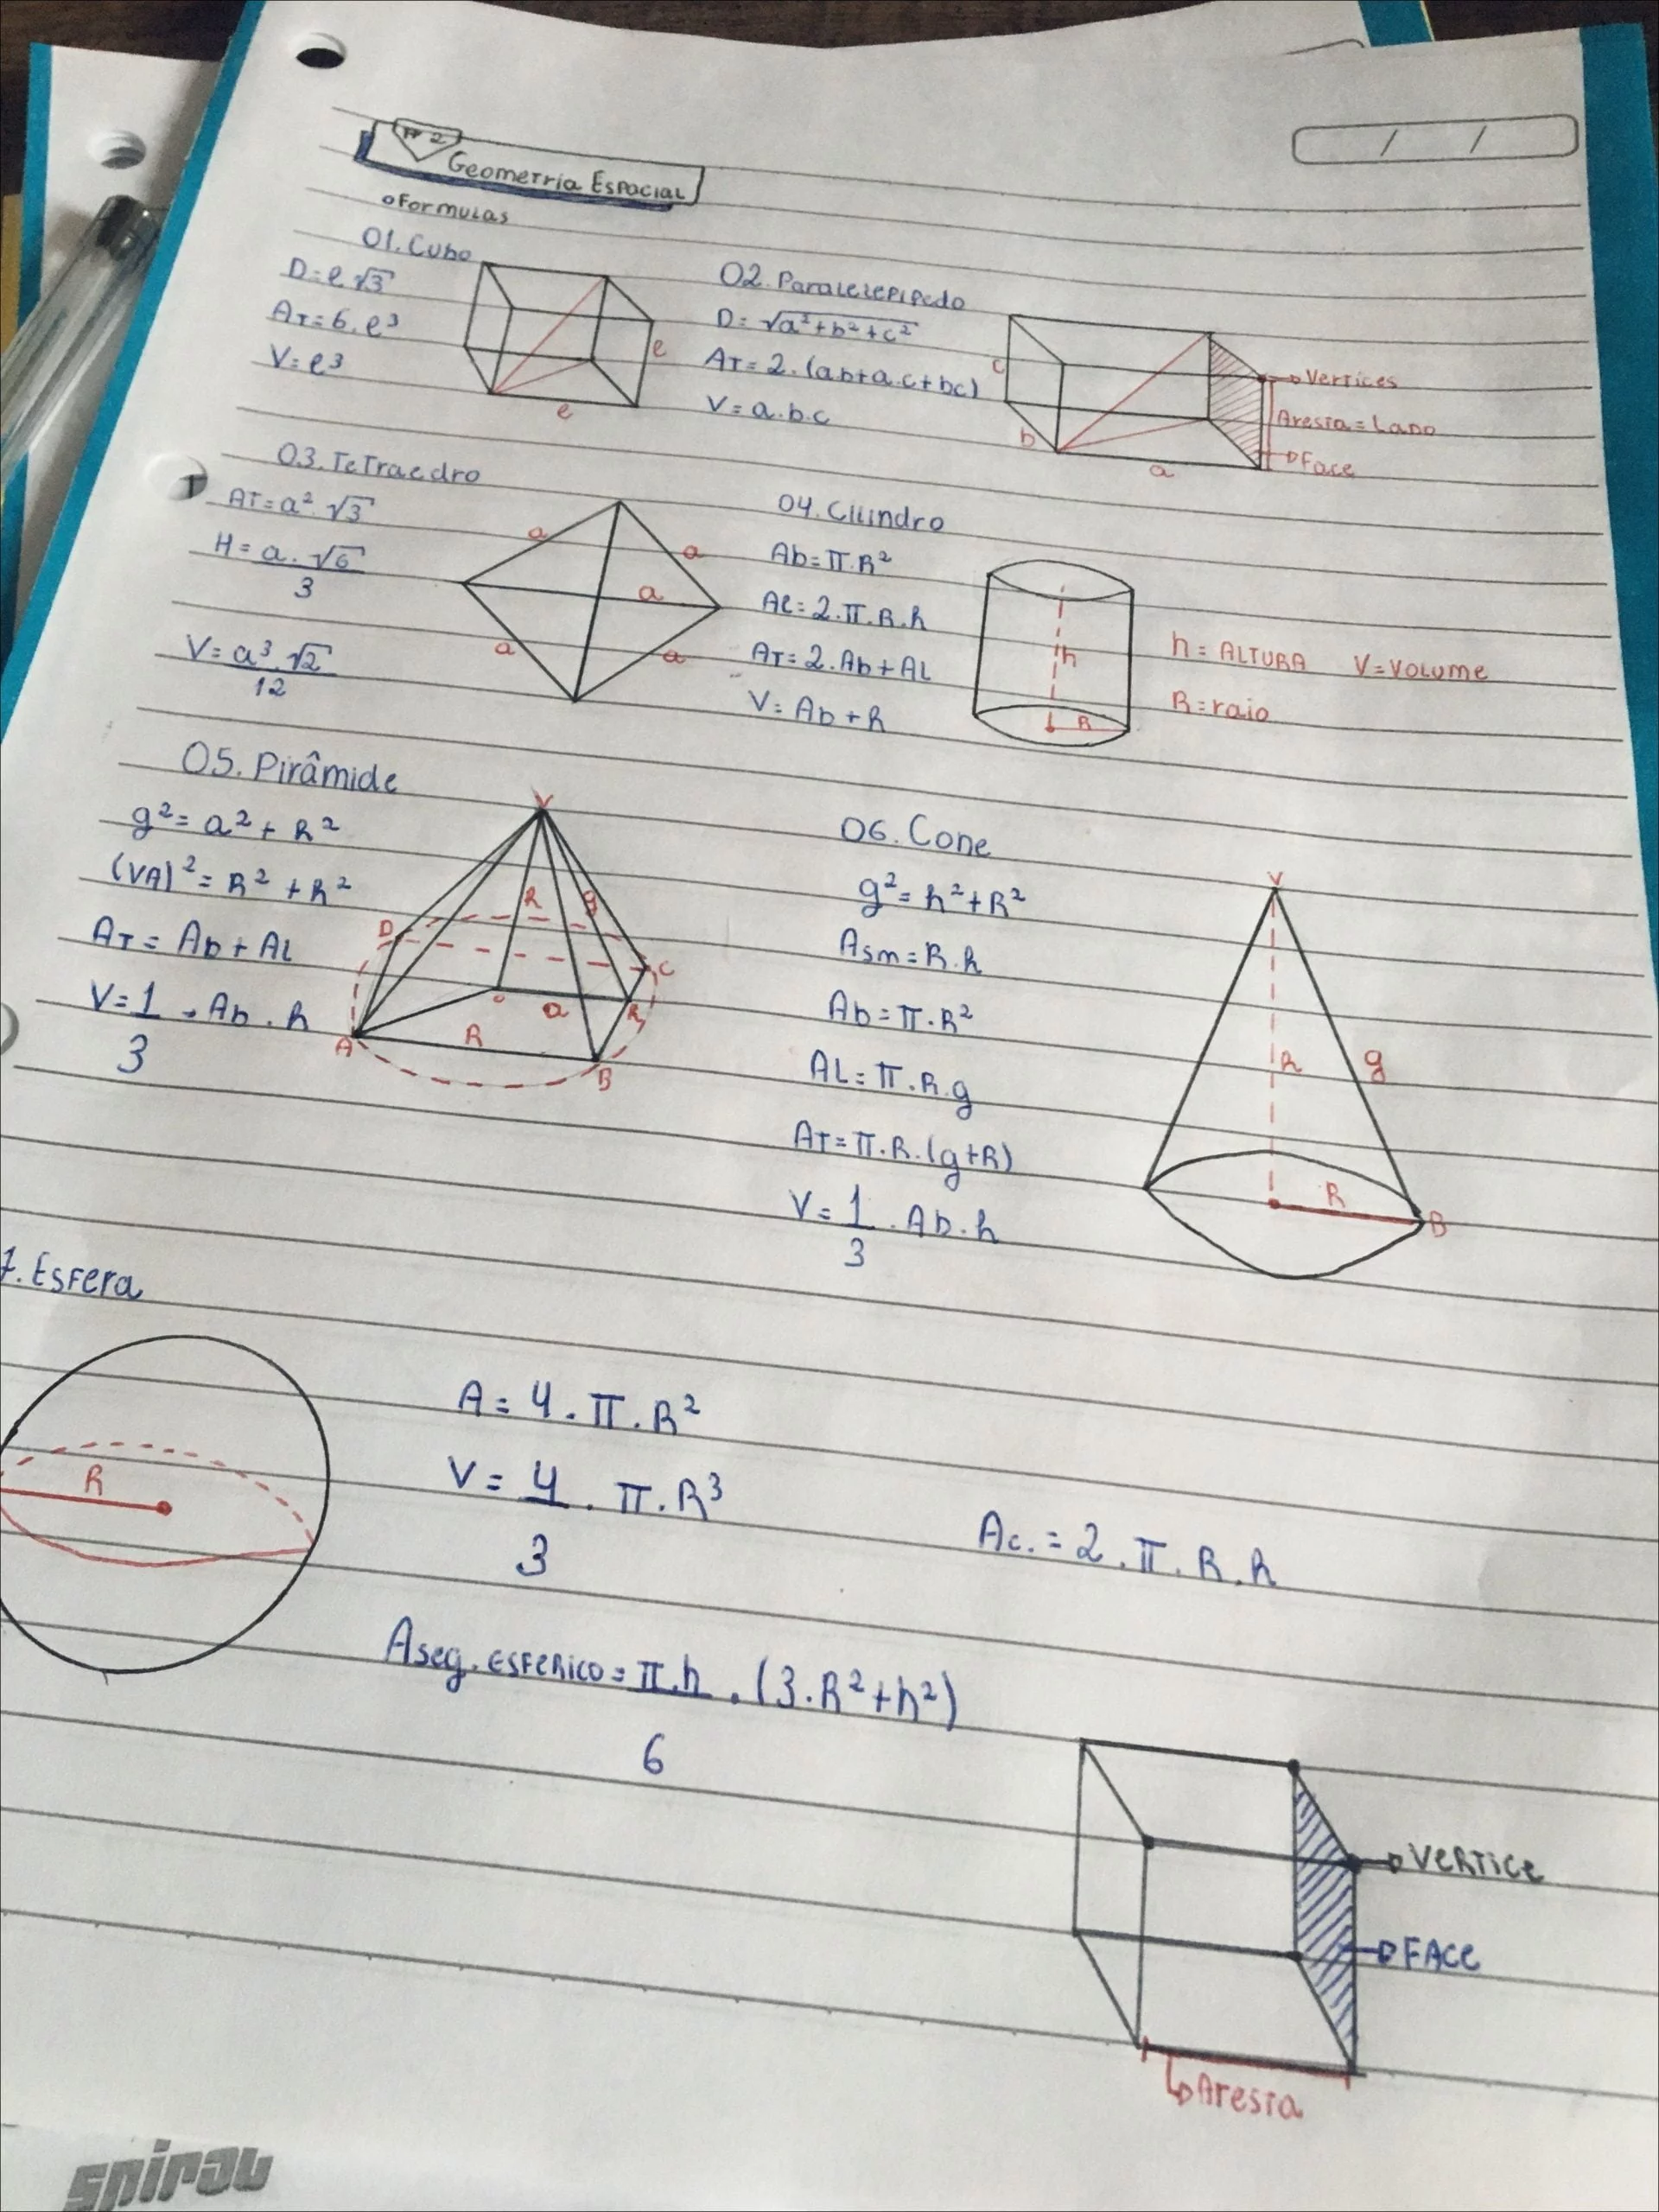 Nº 2
Geometria Espacial
Formulas
01. Cubo
D = e √3
AT = 6. e³
V = e³
e
e
02. Paralelepipedo
D = √a² + b² + c²
AT = 2. (ab + a.c + bc)
V = a.b.c
c
b
a
Vertices
Aresta = Lado
Face
03. Tetraedro
AT = a² √3
H = a . √6
3
V = a³ . √2
12
a
a
a
a
a
04. Cilindro
Ab = π.R²
Al = 2.π.R.h
AT = 2.Ab + AL
V = Ab + h
h
R
h = ALTURA V = VOLUME
R = raio
05. Pirâmide
g² = a² + h²
(VA)² = R² + h²
AT = Ab + AL
V = 1 . Ab . h
3
V
h
g
D
C
a
R
A
B
06. Cone
g² = h² + R²
Asm = R.h
Ab = π.R²
AL = π.R.g
AT = π.R.(g+R)
V = 1 . Ab.h
3
V
h
g
R
B
7. Esfera
R
A = 4 . π . R²
V = 4 . π . R³
3
Ac. = 2 . π . R . h
Aseg. ESFERICO = π.h . (3.R² + h²)
6
VERTICE
FACE
Aresta
spiral